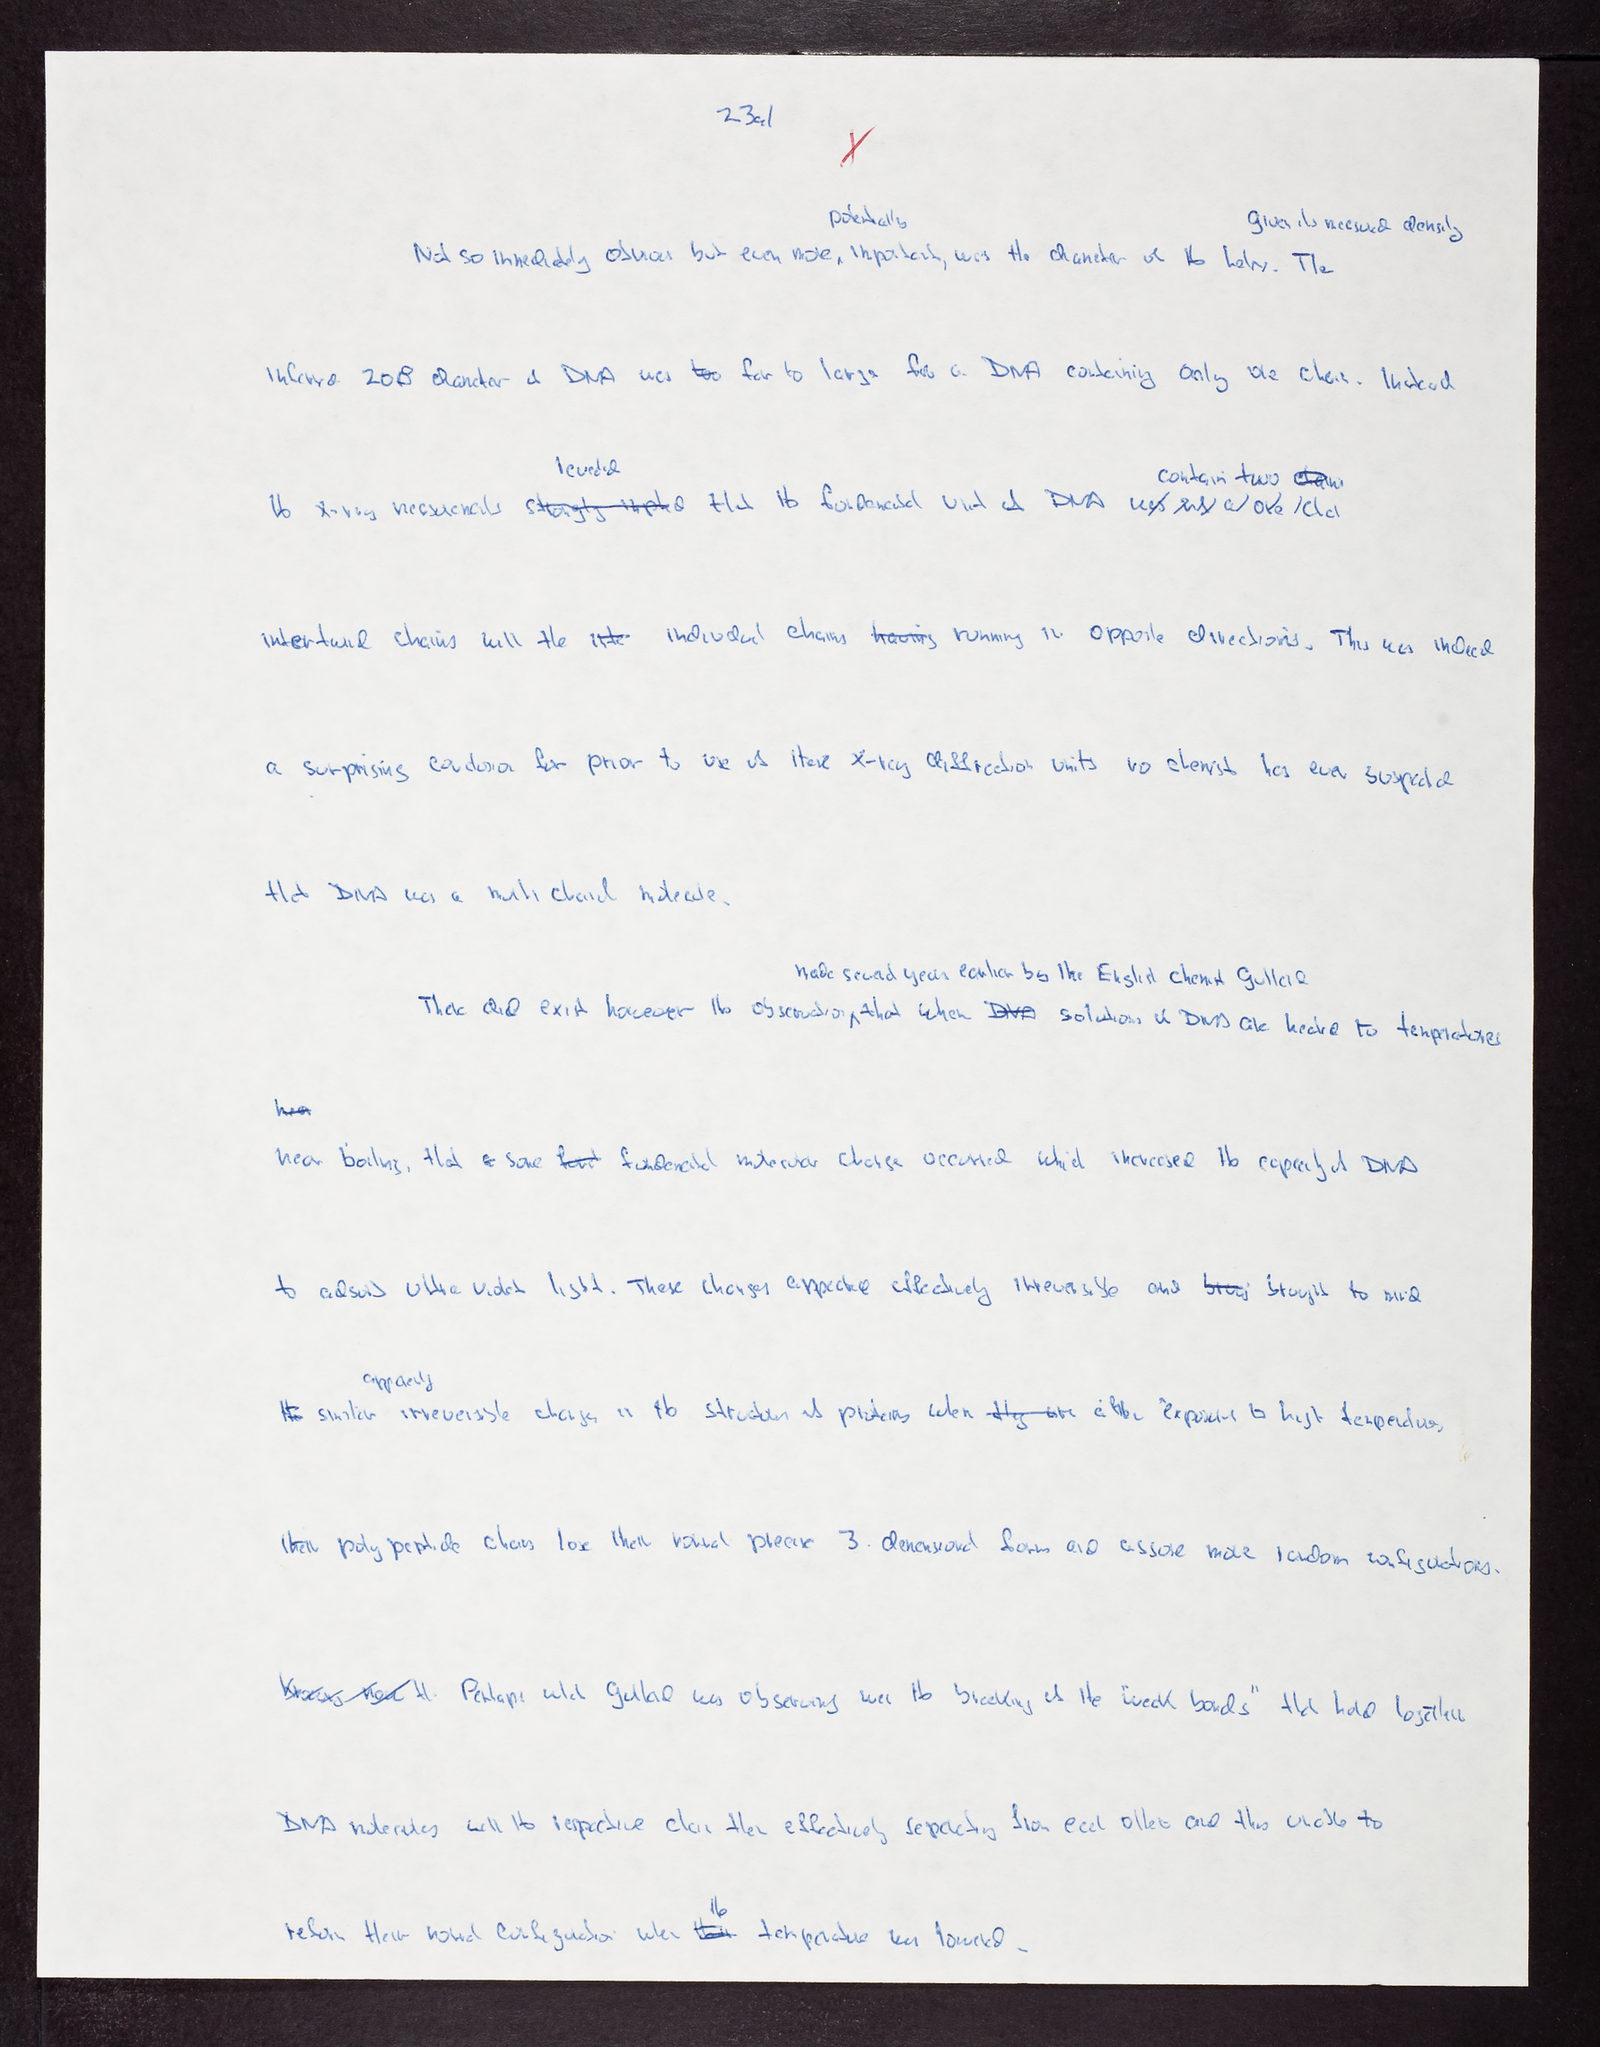 23a1
X
potentially
given its measured density
Not so immediately obvious but even more, important, was the diameter of the helix. The
inferred 20Å diameter of DNA was too far to large for a DNA containing only one chain. Instead
revealed
contain two chains
the x-ray measurements strongly implied that the fundamental unit of DNA was not a one chain
intertwined chains with the inte individual chains having running in opposite directions. This was indeed
a surprising conclusion for prior to use of these X-ray diffraction units no chemist has ever suspected
that DNA was a multi chained molecule.
made several years earlier by the English chemist Gulland
There did exist however the observation, that when DNA solutions of DNA are heated to temperatures
hea
near boiling, that a some fund fundamental molecular change occurred which increased the capacity of DNA
to adsorb ultra violet light. These changes appeared effectively irreversible and broug brought to mind
apparently
the similar irreversible changes in the structures of proteins when they are after exposure to high temperatures
their polypeptide chains lose their normal precise 3-dimensional forms and assume more random configurations.
Perhaps what Gulland was observing was the breaking of the "weak bonds" that hold together
DNA molecules with the respective chains then effectively separating from each other and thus unable to
the
reform their normal configuration when their temperature was lowered.